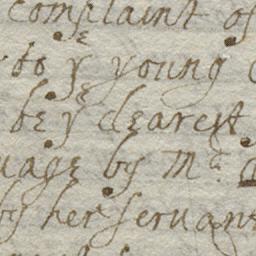 complaint of
to yᵉ young
be yᵉ dearest
uage by Mʳ
by her servant